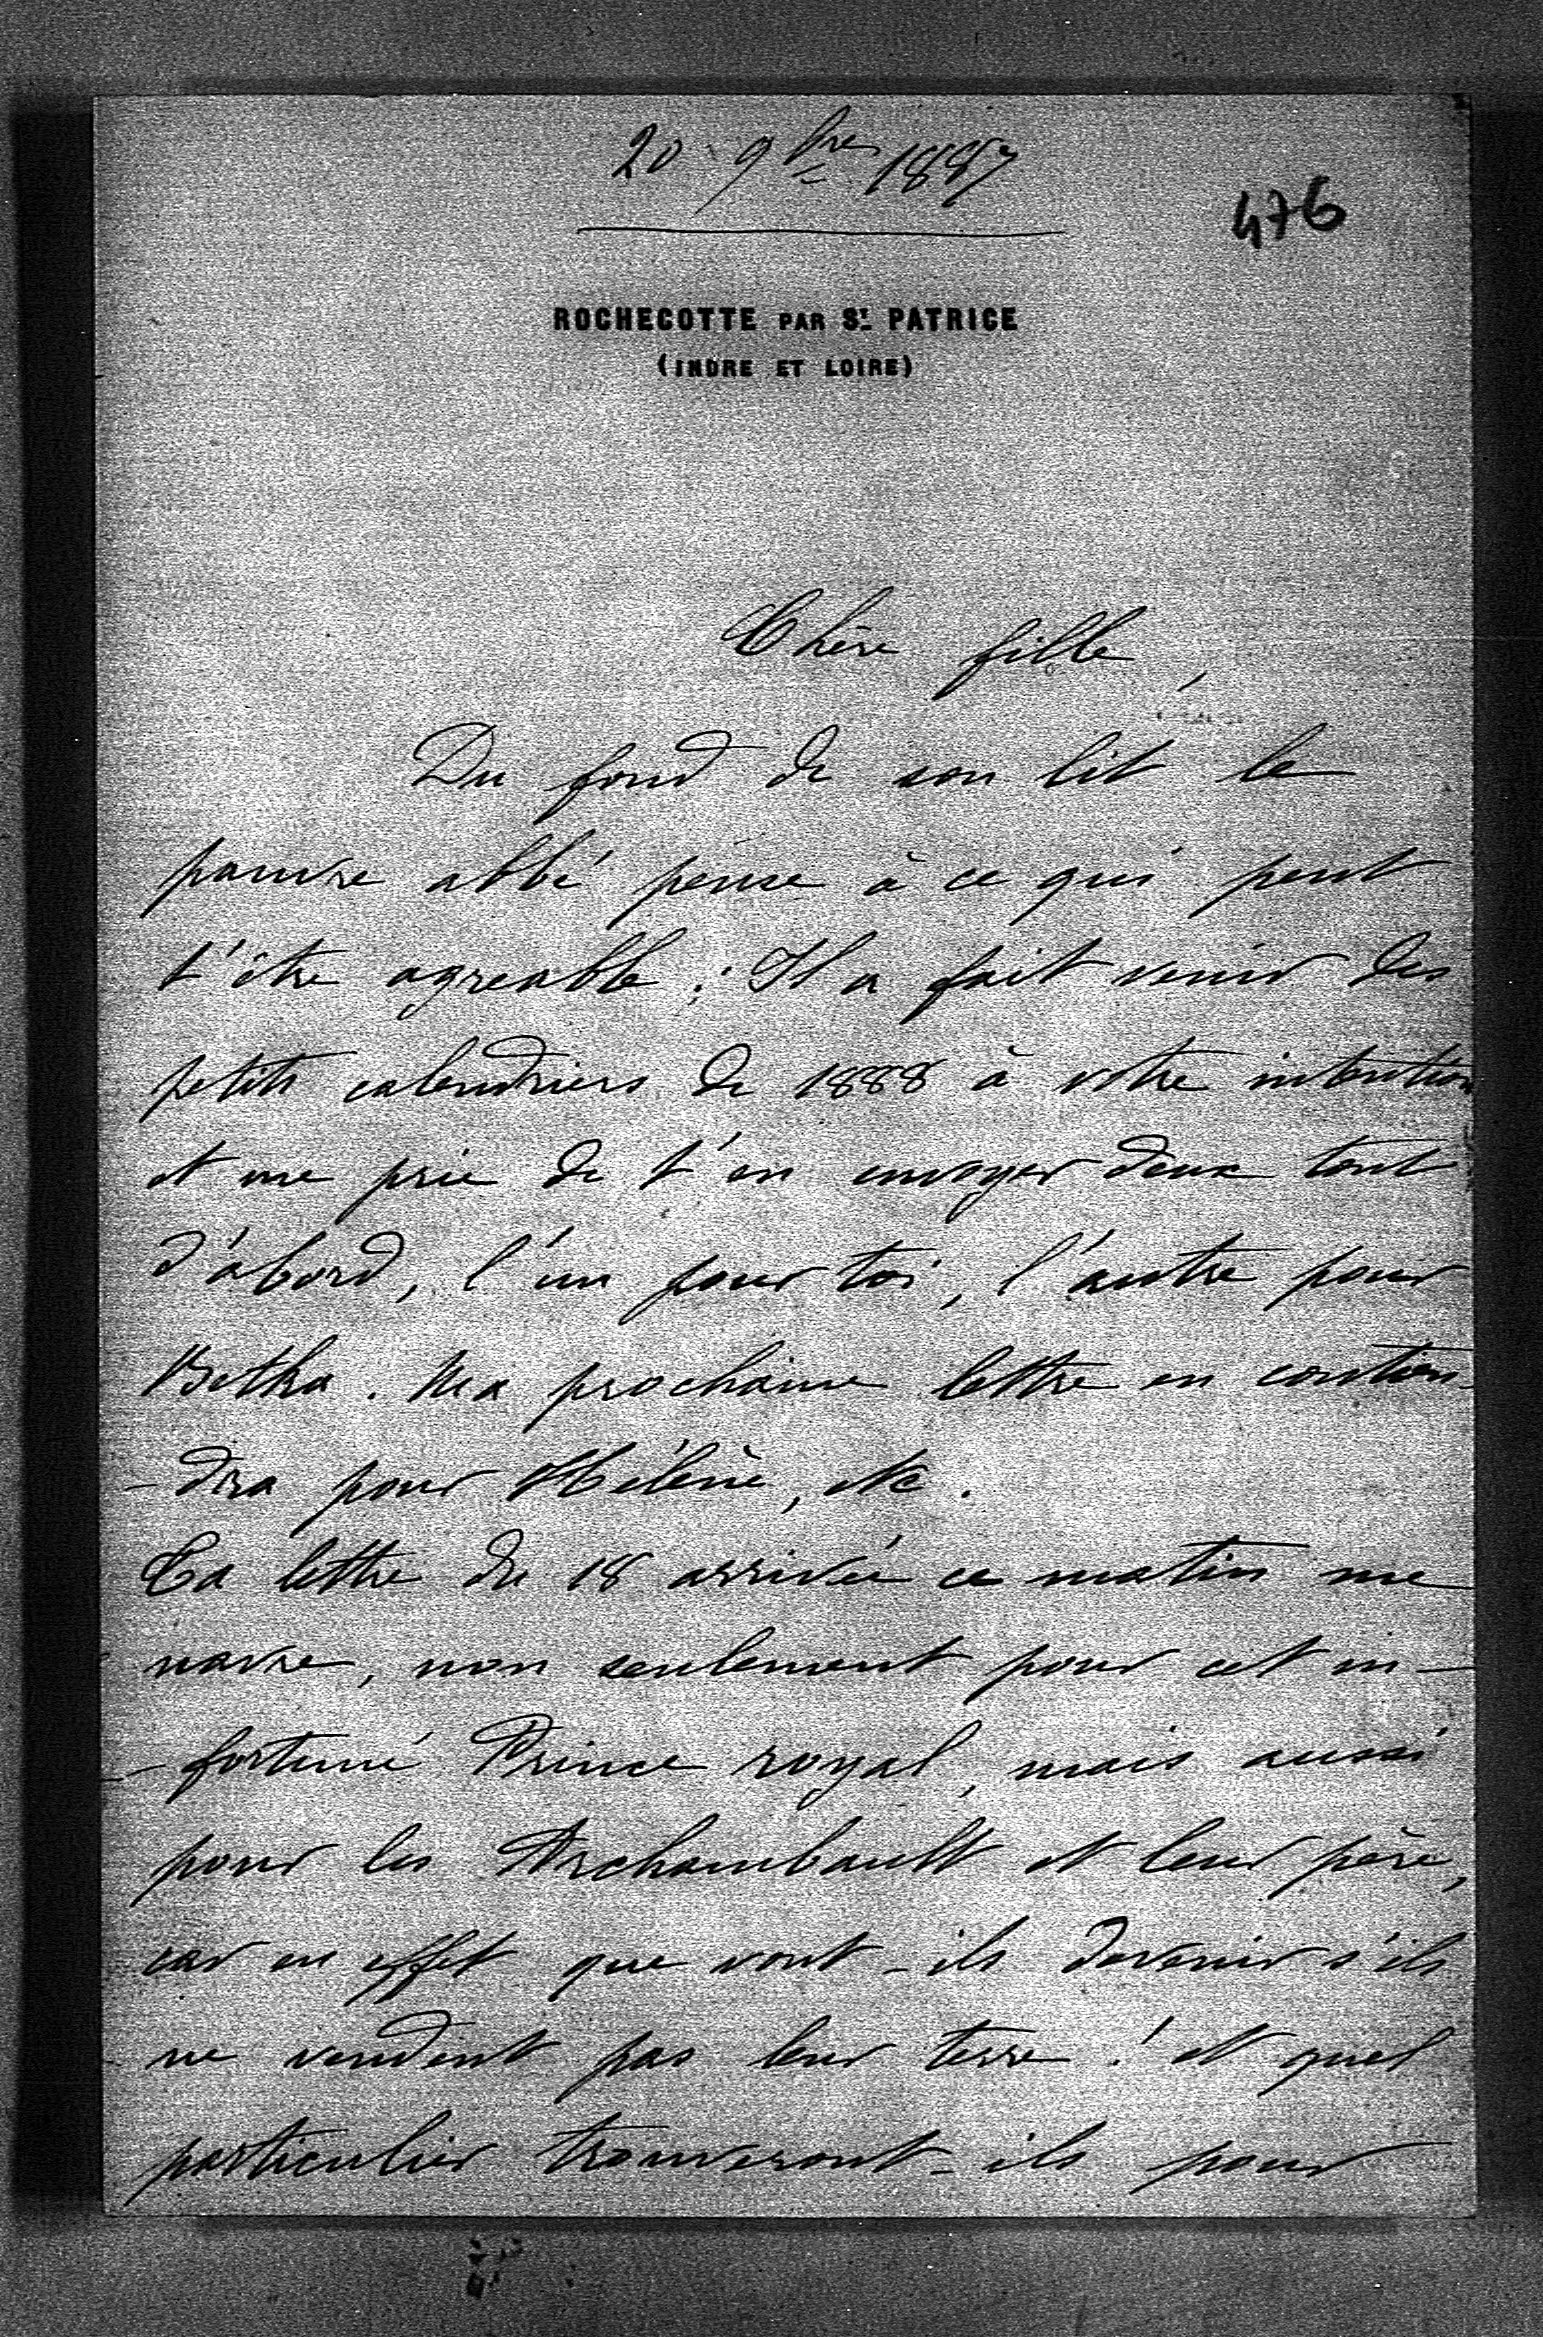 20 9bre 1887
476
ROCHECOTTE PAR ST. PATRICE
(INDRE ET LOIRE)
Chère fille,
Du fond de son lit le
pauvre abbé pense à ce qui peut
t'être agreable : Il a fait venir des
petits calendriers de 1888 à votre intention
et me prie de t'en envoyer deux tout
d'abord, l'un pour toi, l'autre pour
Betka. Ma prochaine lettre en contien-
-dra pour Hélène, etc.
Ta lettre du 18 arrivée ce matin me
navre, non seulement pour cet in-
-fortuné Prince royal, mais aussi
pour les Archambault et leur père,
car en effet que vont-ils devenir s'ils
ne vendent pas leur terre ! et quel
particulier trouveront-ils pour